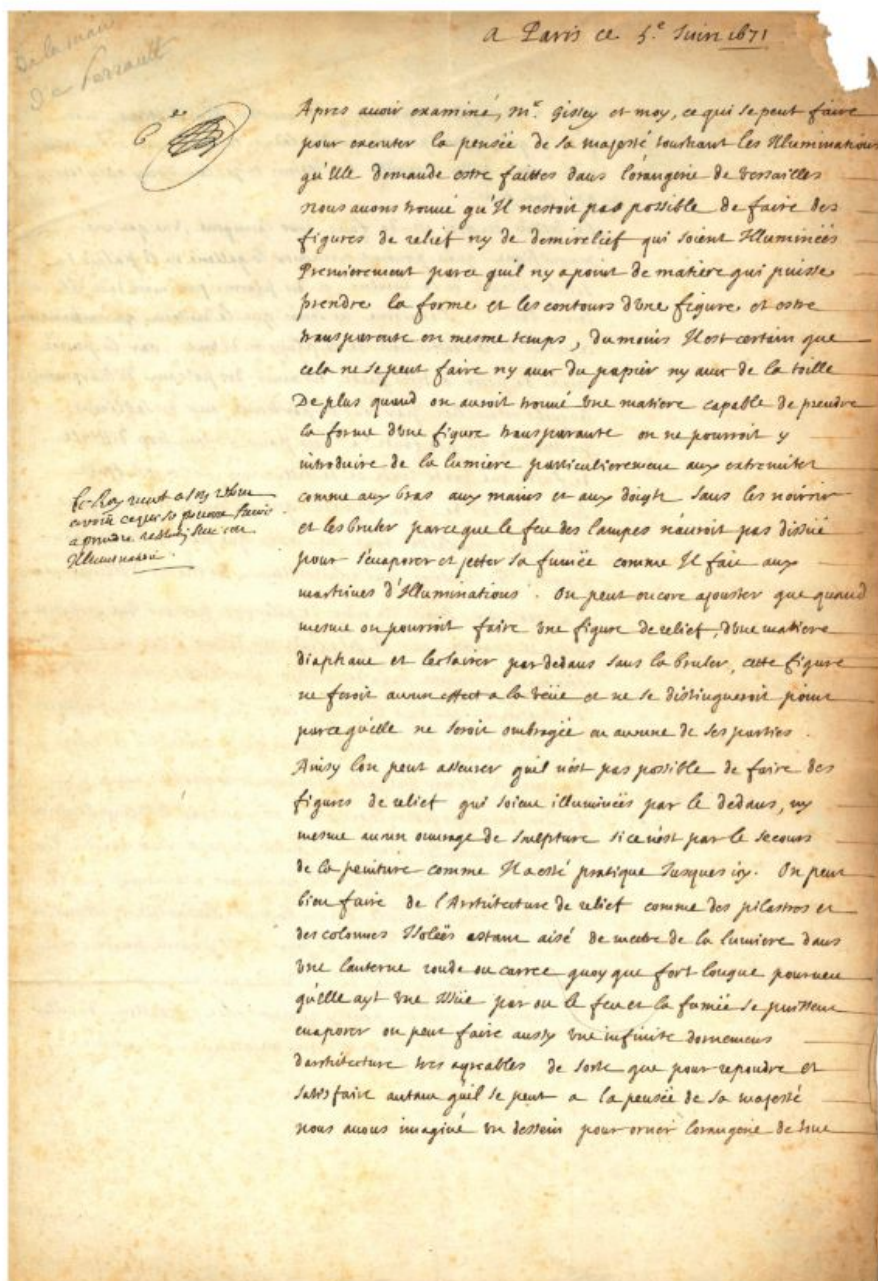 A Paris ce 5.e Juin 1671
De la main
de Perrault
6 e
Apres avoir examiné, mr. Gissey et moy, ce qui se peut faire
pour executer la pensée de sa majesté touchant les Illuminations
qu'Elle demande estre faittes dans l'orangerie de versailles
nous avons trouvé qu'Il n'estoit pas possible de faire des
figures de relief ny de demirelief qui soient Illuminées
Premierement parce quil ny a point de matiere qui puisse
prendre la forme et les contours d'vne figure et estre
transparente en mesme temps, du moins Il est certain que
cela ne se peut faire ny avec du papier ny avec de la toille
De plus quand on auroit trouvé vne matiere capable de prendre
la forme d'vne figure transparante on ne pourroit y
introduire de la lumiere particulierement aux extremitez
comme aux bras aux mains et aux doigts sans les noircir
et les bruler parce que le feu des lampes n'auroit pas d'issüe
pour s'evaporer et jetter sa fumée comme Il fait aux
machines d'Illuminations. On peut encore ajouster que quand
mesme on pourroit faire vne figure de relief, d'vne matiere
diaphane et l'esclairer par dedans sans la bruler, cette figure
ne feroit aucun effect a la veüe et ne se distingueroit point
parce qu'elle ne seroit ombragée en aucune de ses parties.
Ainsy l'on peut asseurer qu'il n'est pas possible de faire des
figures de relief qui soient illuminées par le dedans, ny
mesme aucun ouvrage de sculpture si ce n'est par le secours
de la peinture comme Il a esté pratiqué Jusques icy. On peut
bien faire de l'Architecture de relief comme des pilastres et
des colonnes Isolées estant aisé de mettre de la lumiere dans
vne lanterne ronde ou carree quoy que fort longue pourveu
qu'elle ayt vne Issüe par ou le feu et la fumée se puissent
evaporer on peut faire aussy vne infinité d'ornemens
d'architecture tres agreables de sorte que pour repondre et
satisfaire autant qu'il se peut a la pensée de sa majesté
nous avons imaginé vn dessein pour orner l'orangerie de
le Roy veut a son retour
a prendre
Illumination.